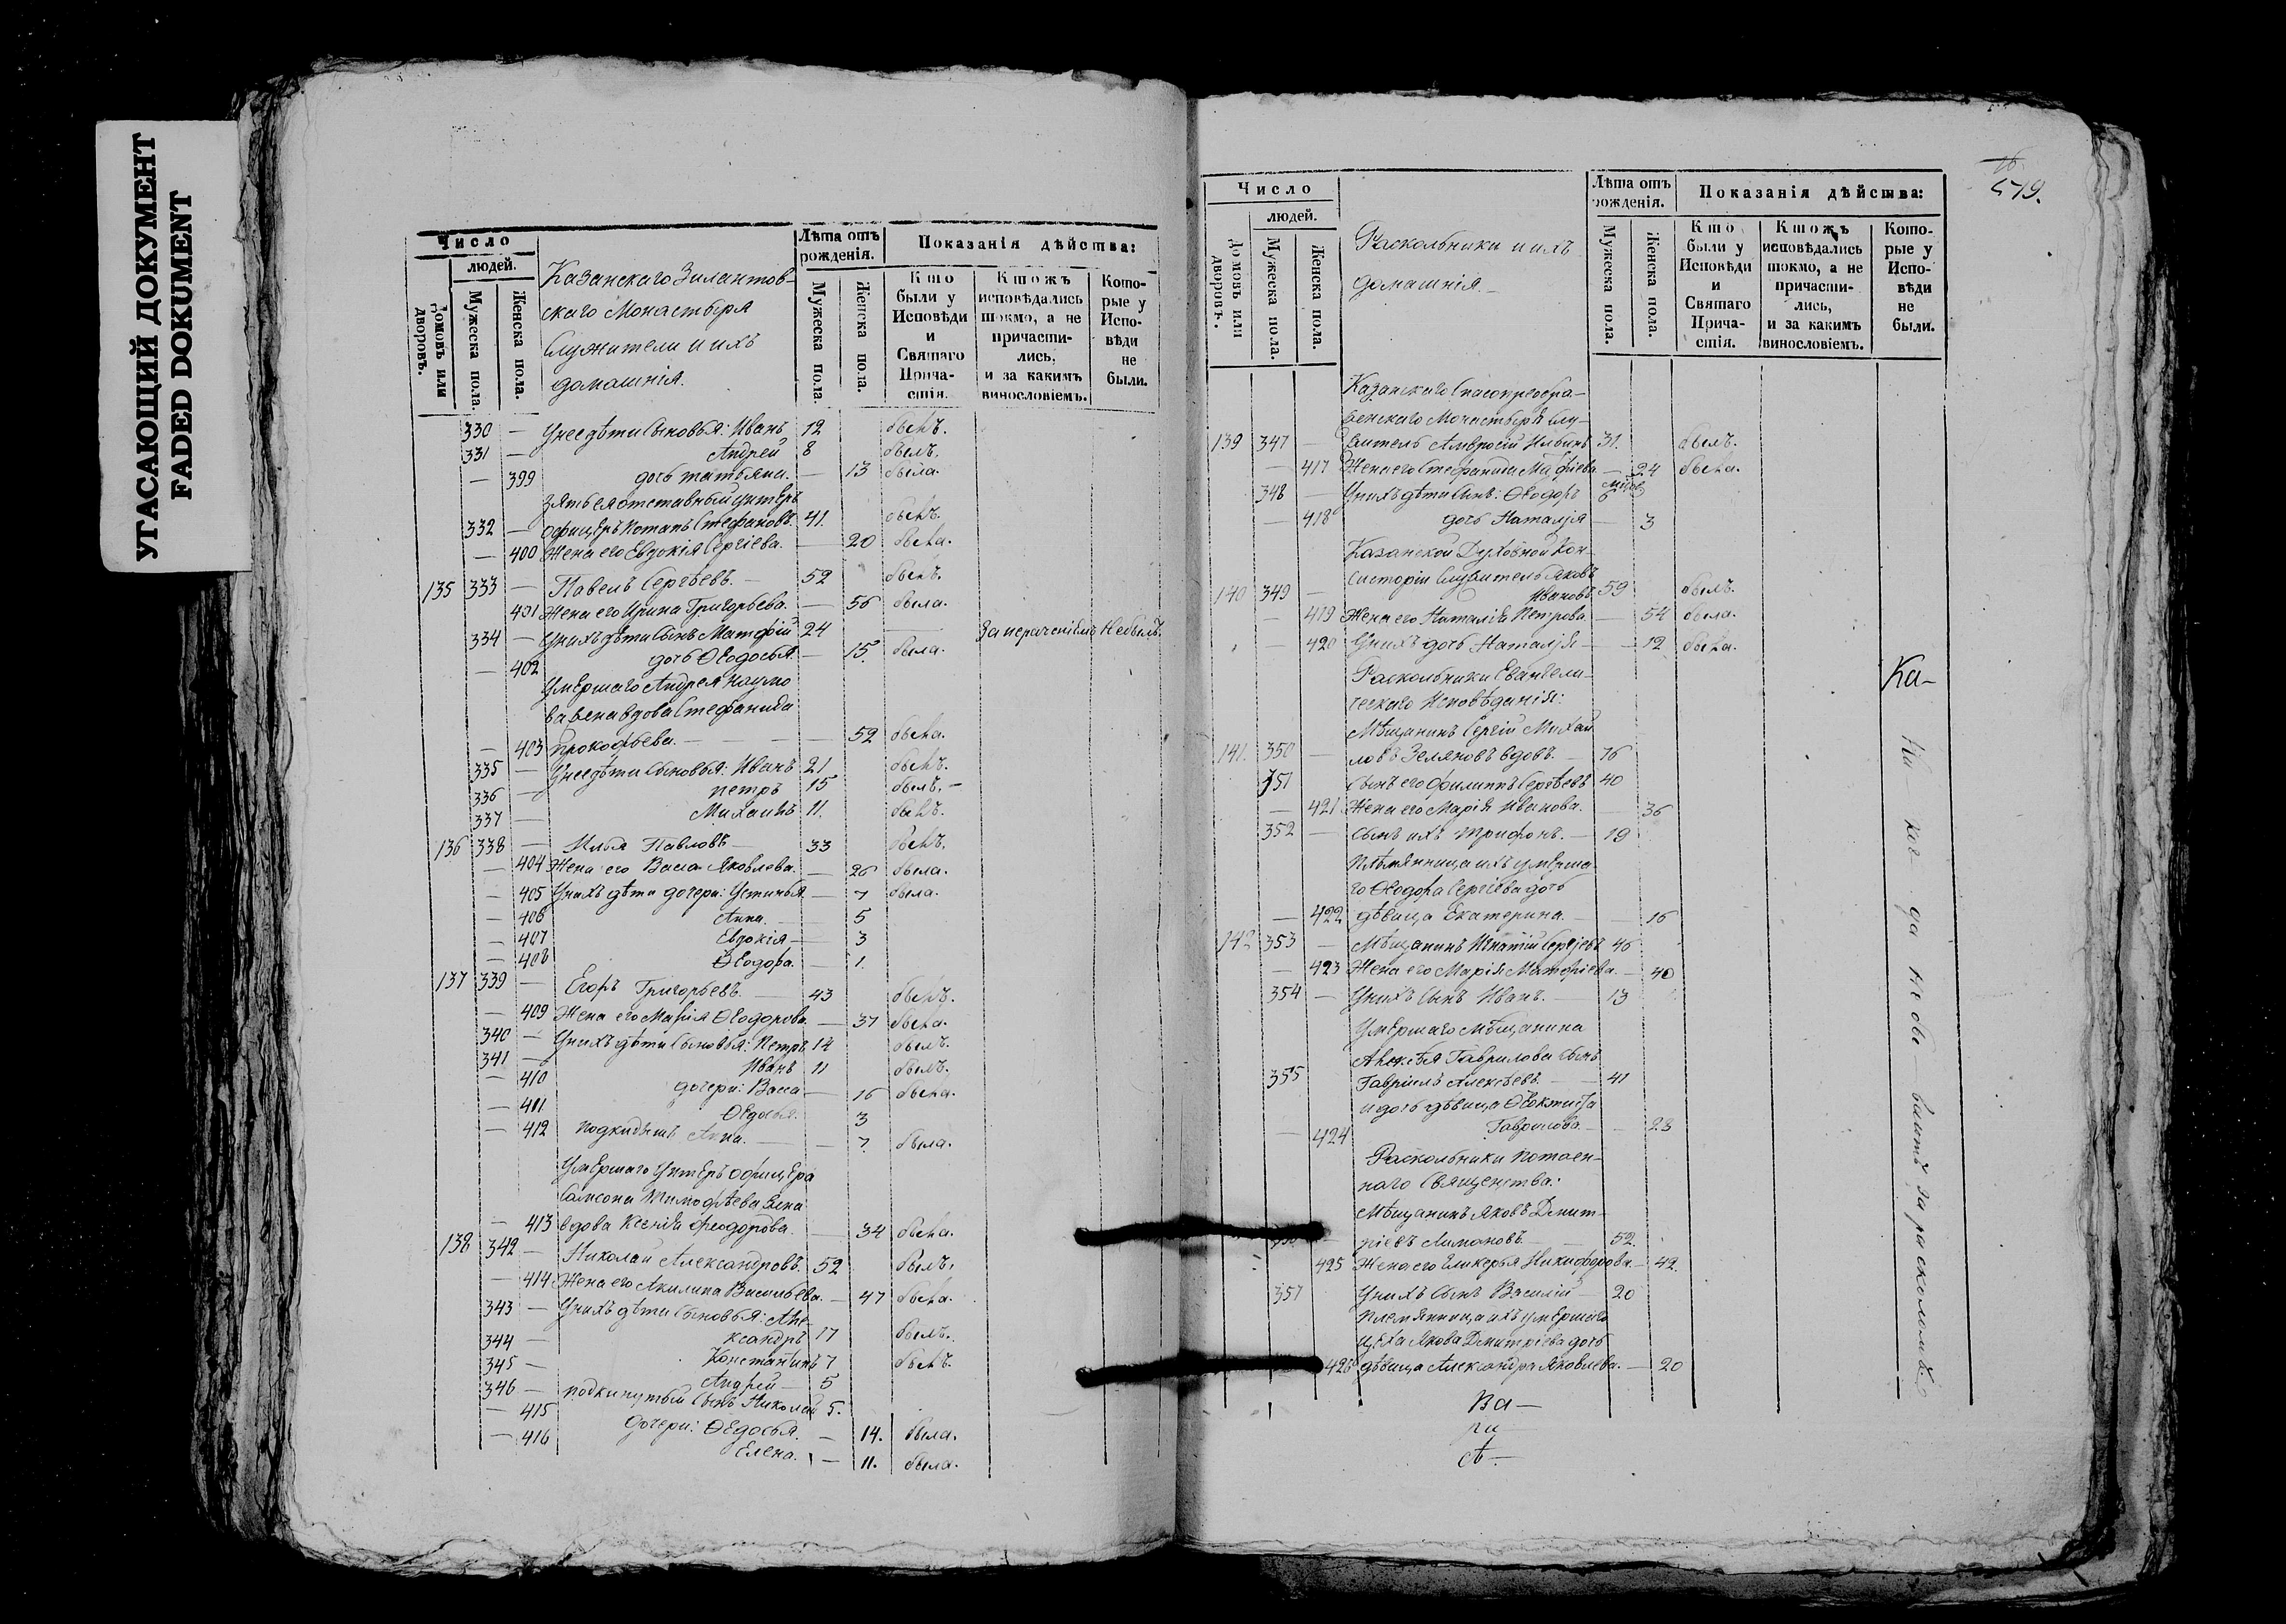 УГАСАЮЩИЙ ДОКУМЕНТ
FADED DOKUMENT
Число
людей.
Домовъ или дворовъ.
Мужеска пола.
Женска пола.
Казанскаго Зилантов-
скаго Монастыря
служители и ихъ
домашнія.
Лѣта отъ рожденія.
Мужеска пола.
Женска пола.
Показанія дѣйства:
Кто были у Исповѣди и Святаго Причастія.
Ктожъ исповѣдались токмо, а не причастились, и за какимъ винословіемъ.
Которые у Исповѣди не были.
330 — У нее дѣти сыновья: Иванъ 12 былъ.
331 — Андрей 8 былъ.
— 399 дочь Татьяна. — 13 была.
зять ея отставный унтеръ
332 — офицеръ Потапъ Стефановъ. 41. былъ.
— 400 Жена его Евдокія Сергіева. — 20 была.
135 333 — Павелъ Сергѣевъ. — 52 былъ.
401 Жена его Ирина Григорьева. — 56 была.
334 — У нихъ дѣти сынъ Матфій 24 — За нерачѣніемъ не былъ.
— 402 дочь Ѳеодосья. — 15. была.
Умершаго Андрея Наумо
ва жена вдова Стефанида
— 403 Прокофьева. — — — 52 была.
335 — У нее дѣти сыновья: Иванъ 21 былъ.
336 — Петръ 15 былъ. —
337 — Михаилъ 11. былъ.
136 338 — Илья Павловъ — 33 былъ.
— 404 Жена его Васса Яковлева. — 26 была.
— 405 У нихъ дѣти дочери: Устинья. — 7 была.
— 406 Анна. — 5
— 407 Евдокія — 3
— 408 Ѳеодора. — 1.
137 339 — Егоръ Григорьевъ. — 43 былъ.
— 409 Жена его Марія Ѳеодорова. — 37 была.
340 — У нихъ дѣти сыновья: Петръ 14 былъ.
341 — Иванъ 11 былъ.
— 410 дочери: Васса — 16 была.
— 411 Ѳедосья. 3
— 412 подкидышъ Анна. — — 7. была.
Умершаго унтеръ офицера
Самсона Тимофѣева жена
— 413 вдова Ксенія Феодорова. — 34 была.
138 342 — Николай Александровъ. 52 былъ.
— 414 Жена его Акилина Васильева. — 47 была.
343 — У нихъ дѣти сыновья: Але-
344 — ксандръ 17 былъ.
345 — Константинъ 7 былъ.
346 — Андрей — 5
— 415 подкинутый сынъ Николай 5.
— 416 дочери: Ѳедосья. — 14. была.
Елена. — 11. была.
16
519.
Число
людей.
Домовъ или дворовъ.
Мужеска пола.
Женска пола.
Раскольники и ихъ
домашнія. —
Лѣта отъ рожденія.
Мужеска пола.
Женска пола.
Показанія дѣйства:
Кто были у Исповѣди и Святаго Причастія.
Ктожъ исповѣдались токмо, а не причастились, и за какимъ винословіемъ.
Которые у Исповѣди не были.
Казанскаго Спасопреобра-
женскаго Монастыря слу-
139 347 — житель Амвросій Ильинъ 31. былъ.
— 417 Жена его Стефанида Матфіева — 24 была.
348 — У нихъ дѣти сынъ: Ѳеодоръ 6
— 418 дочь Наталія — 3
Казанской Духовной Кон-
систоріи служитель Яковъ
140 349 — Ивановъ 59 былъ.
— 419 Жена его Наталія Петрова. — 54 была.
— 420 У нихъ дочь Наталія — — 12 была.
Раскольники Евангели-
ческаго Исповѣданія:
Мѣщанинъ Сергій Михай
141. 350 — ловъ Зеляновъ вдовъ. — 76
351 Сынъ его Филиппъ Сергѣевъ 40
— 421 Жена его Марія Иванова. — 36
352 — Сынъ ихъ Трифонъ. — 19
Племянница ихъ умерша
го Ѳеодора Сергіева дочь
— 422 дѣвица Екатерина. — — 16
142 353 — Мѣщанинъ Игнатій Сергіевъ 46
— 423 Жена его Марія Матфіева. — 40
354 — У нихъ сынъ Иванъ. — 13
Умершаго мѣщанина
Алексѣя Гаврилова сынъ
355 Гавріилъ Алексѣевъ. — 41
и дочь дѣвица Ѳеоктиста
— 424 Гаврилова. — — 23
Раскольники потаен-
наго священства:
Мѣщанинъ Яковъ Дмит-
ріевъ Лимоновъ. — 52.
425 Жена его Гликерья Никифорова. — 42.
357 У нихъ сынъ Василій — 20
Племянница ихъ умершаго
Якова Дмитріева дочь
426 дѣвица Александра Яковлева. — 20
Ка-
ни ко гда не бы ваютъ за расколомъ.